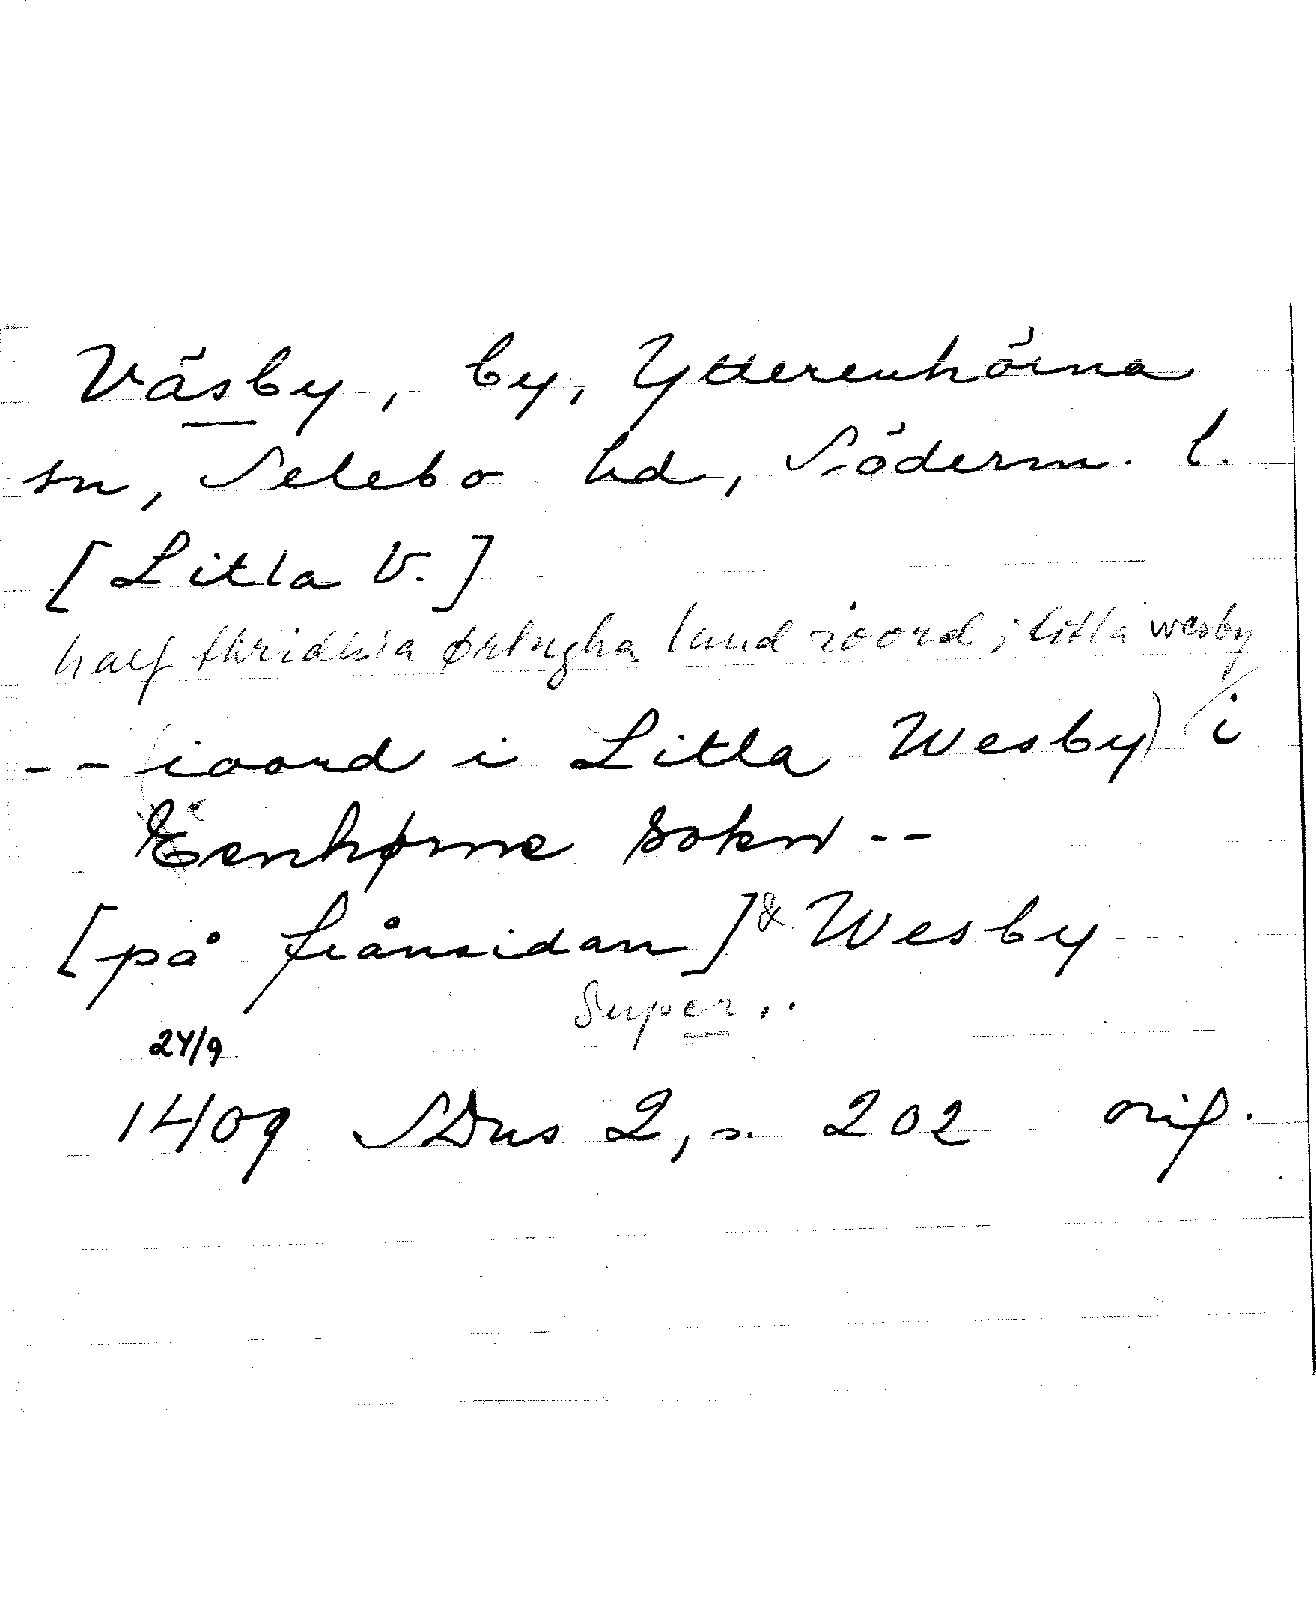 Väsby, by, Ytterenhörna
sn, Selebo hd, Söderm. l.
[Litla V.]
half thridhia ørtugha land ioord i litla wesby
-- (ioord i Litla Wesby) i
Eenhørne sokn --
[på frånsidan] & Wesby
Super..
24/9
1409 SDns 2, s. 202 orig.